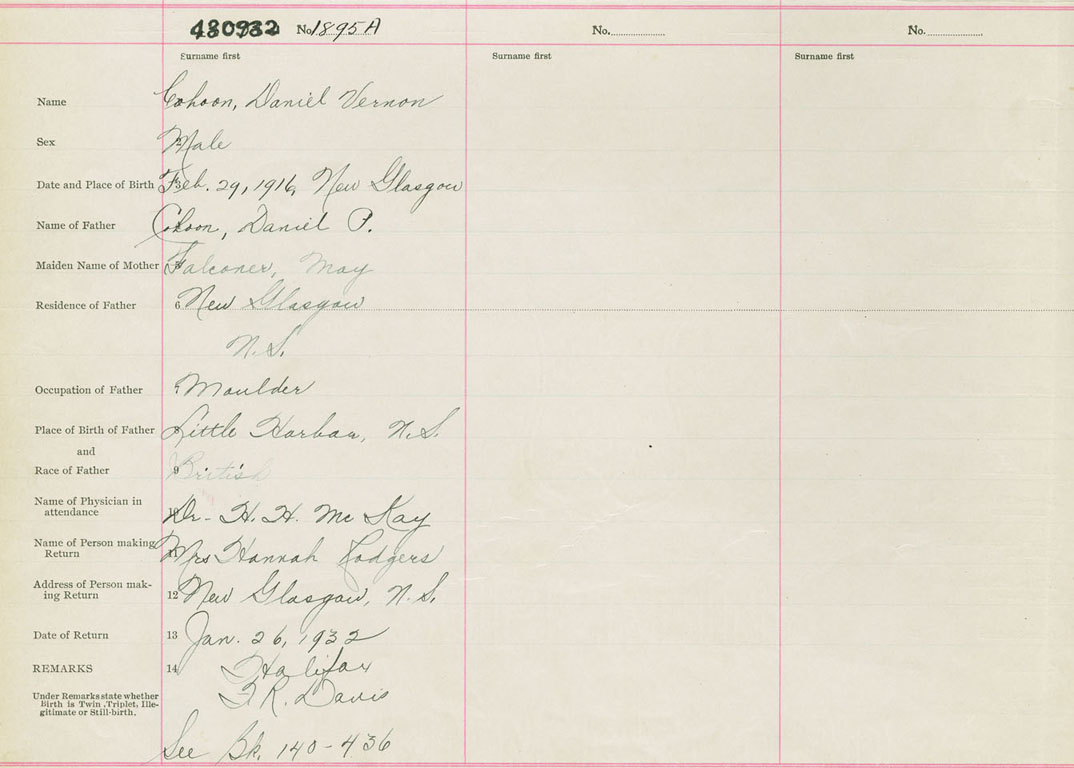 430932 No. 1895A No. No.
Surname first Surname first Surname first
Name Cohoon, Daniel Vernon
Sex Male
Date and Place of Birth 3 Feb. 29, 1916, New Glasgow
Name of Father Cohoon, Daniel P.
Maiden Name of Mother 5 Falconer, May
Residence of Father 6 New Glasgow
N.S.
Occupation of Father 7 Moulder
Place of Birth of Father Little Harbour, N.S.
and
Race of Father 9 British
Name of Physician in
attendance 10 Dr. H. H. McKay
Name of Person making
Return 11 Mrs Hannah Rodgers
Address of Person mak-
ing Return 12 New Glasgow, N.S.
Date of Return 13 Jan. 26, 1932
REMARKS 14 Halifax
Under Remarks state whether
Birth is Twin, Triplet, Ille-
gitimate or Still-birth.
F. R. Davis
See Bk. 140-436